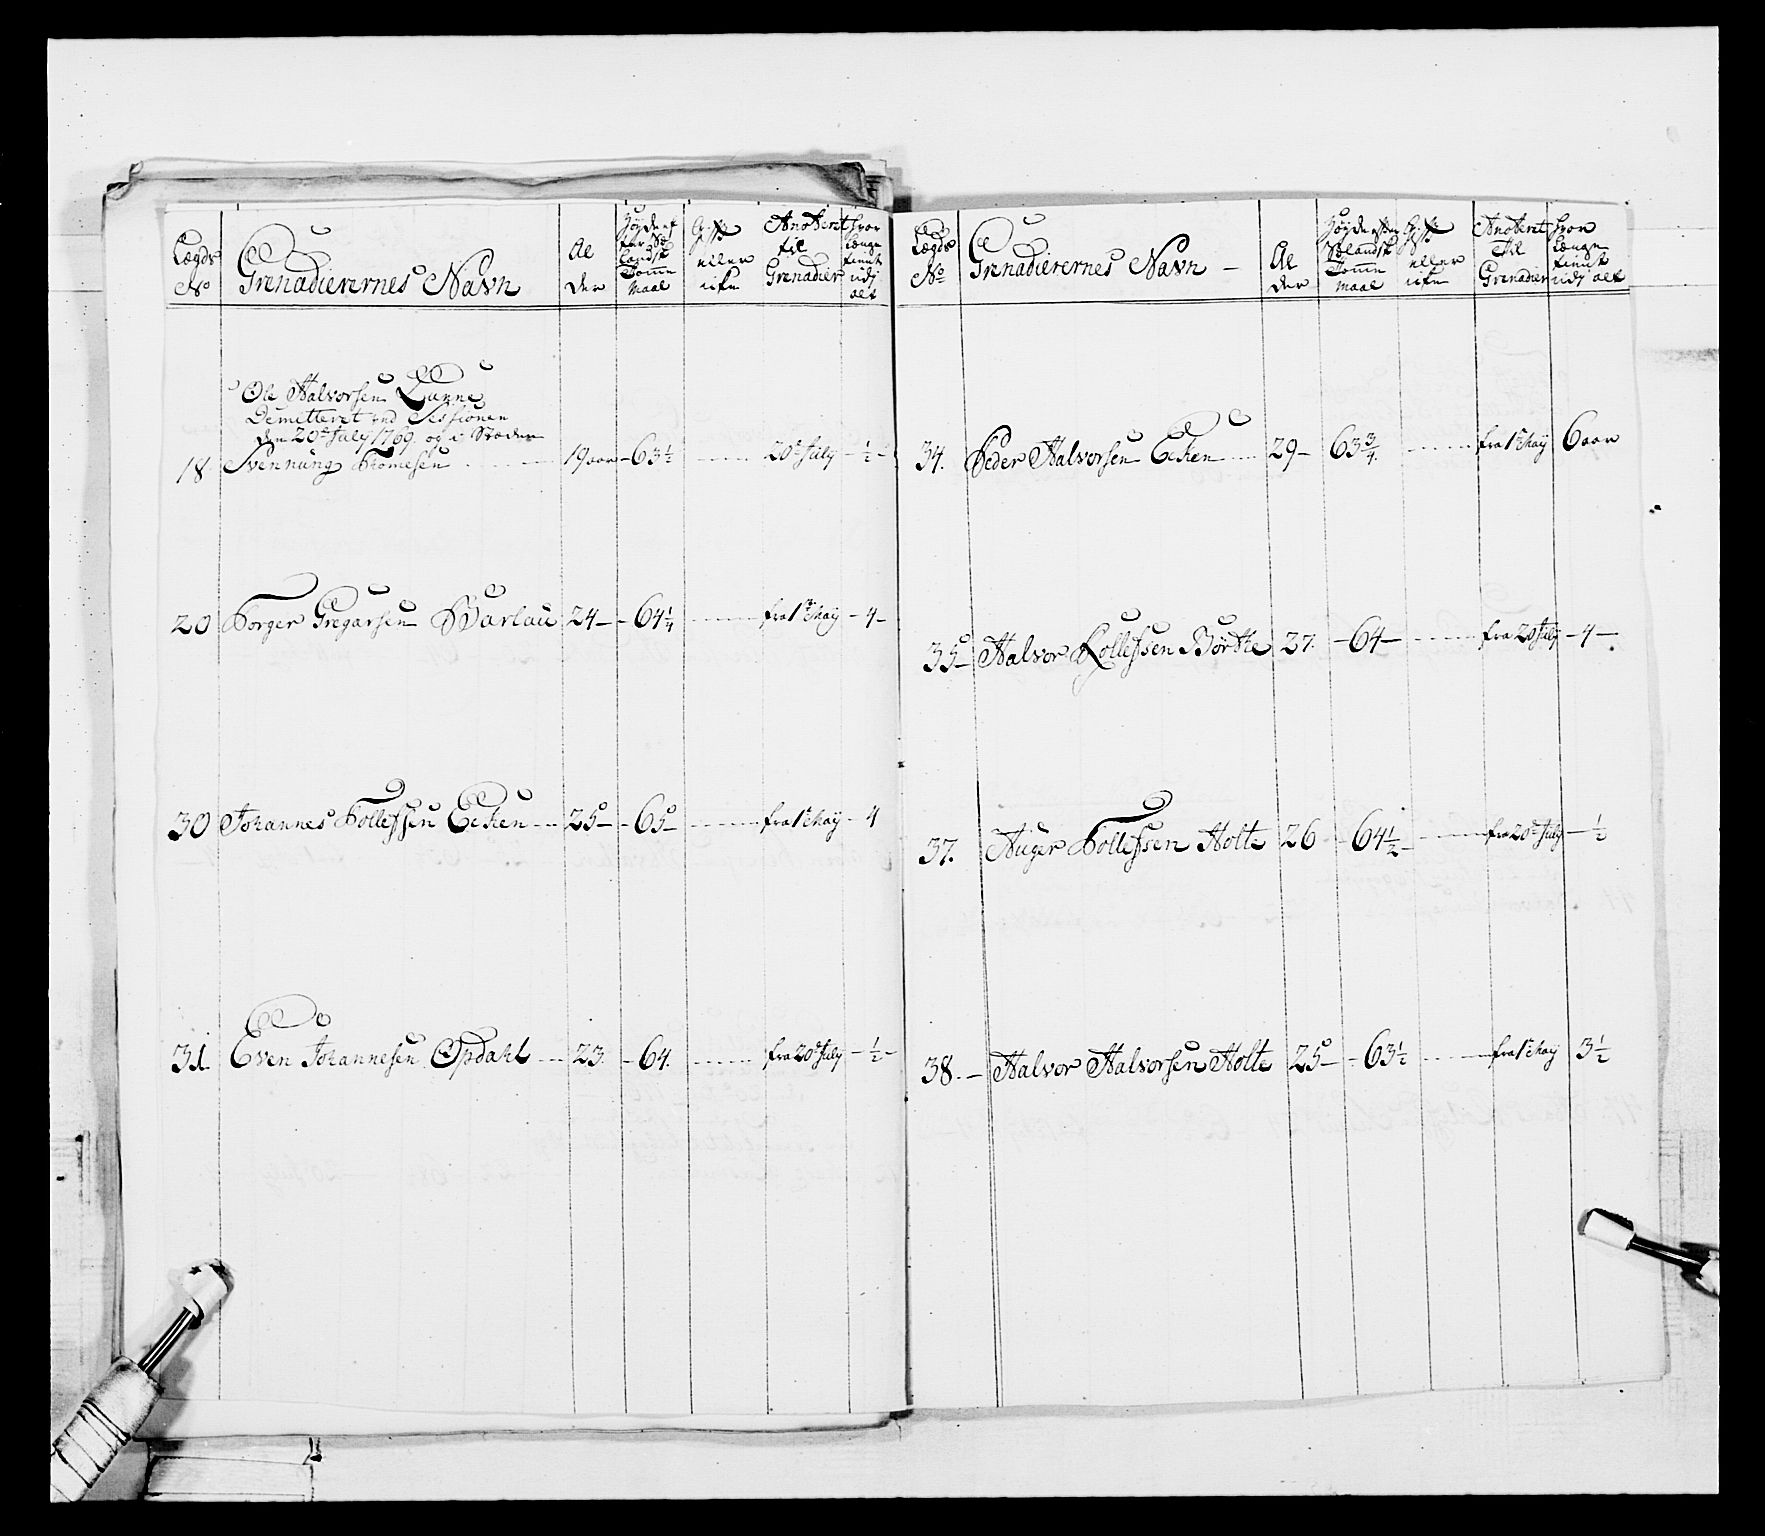 Lægds No
Grenadierernes Navn
Al der
Høyde ef ter Sø landsk Tomme Maal
Gift eller icke
Anoteret til Grenadier
hvor Længe tient udj alt
Ole Halvorsen
Demitteret ved Sessionen
den 20de July 1769. og i Stæden
18 Svennung Tromesen 19 aar 63½ 20de July ½
20 Torger Gregarsen 24 64¼ fra 1te May 4
30 Johannes Tollefsen Ecken 25 65 fra 1te May 4
31. Even Johannesen Opdahl 23 64. fra 20de July ½
Lægds No
Grenadierernes Navn
Al der
Høyde efter Siælandsk Tomme maal
Gift eller icke
Anoteret til Grenadier
hvor Længe tient udj alt
34. Peder Halvorsen Ecken 29 63¾. fra 1te May 6 aar
35 Halvor Rollefsen Börthe 27. 64 fra 20 July 4
37. Auger Tollefsen Holte 26 64½ fra 20de July ½
38. Halvor Halvorsen Holte 25 63½ fra 1te May 3½